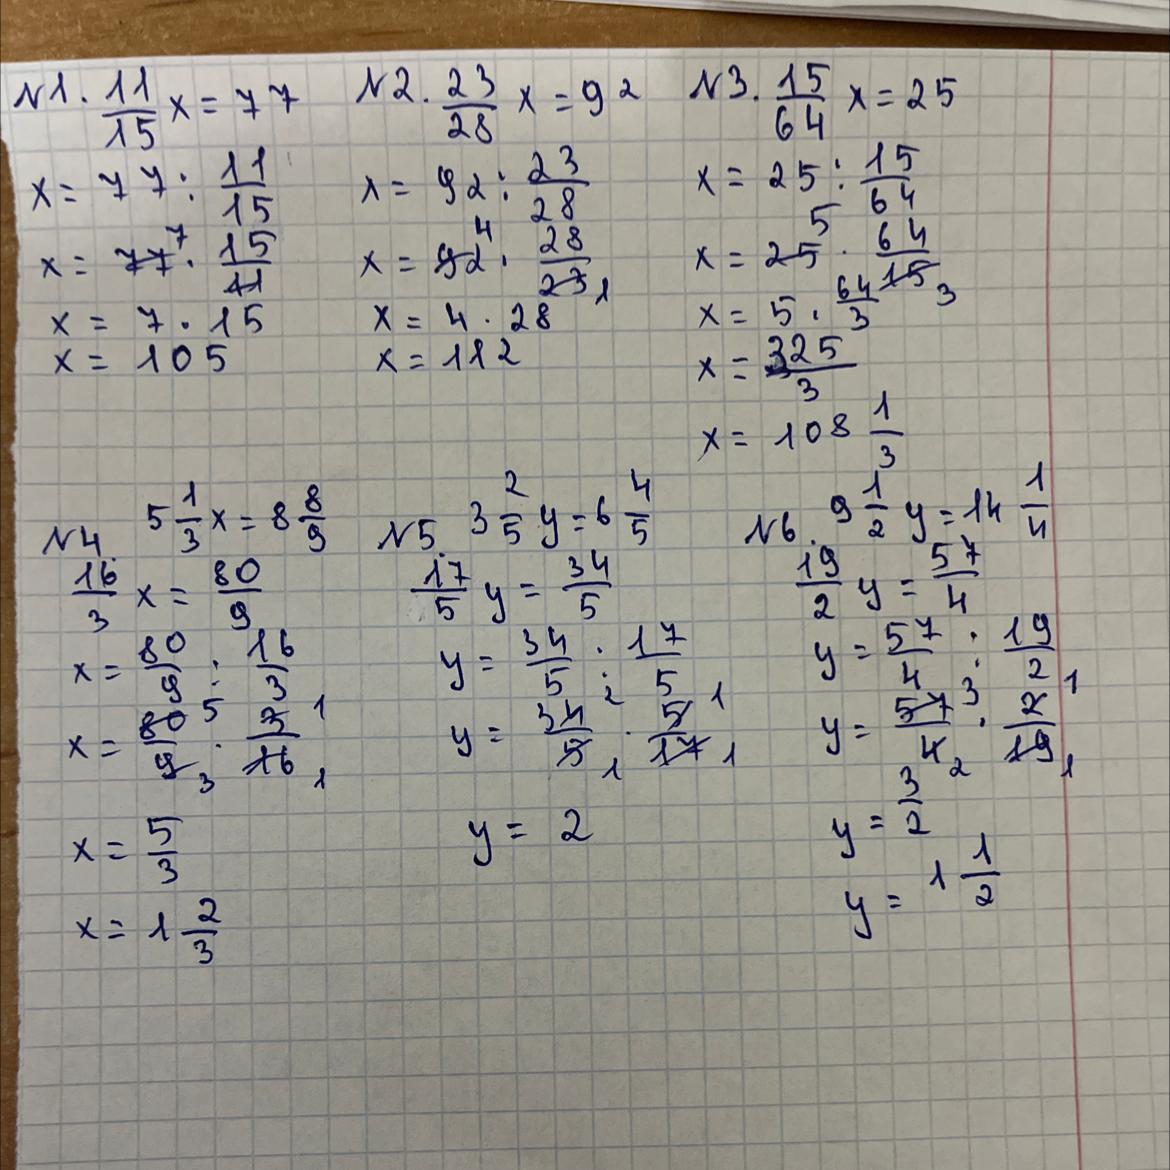 №1. 11/15 x = 77
x = 77 : 11/15
x = 77 7 · 15/11
x = 7 · 15
x = 105
№2. 23/28 x = 92
x = 92 : 23/28
x = 92 4 · 28/23 1
x = 4 · 28
x = 112
№3. 15/64 x = 25
x = 25 : 15/64
x = 25 5 · 64/15 3
x = 5 · 64/3
x = 325/3
x = 108 1/3
№4. 5 1/3 x = 8 8/9
16/3 x = 80/9
x = 80/9 : 16/3
x = 80 5/9 3 · 3 1/16 1
x = 5/3
x = 1 2/3
№5. 3 2/5 y = 6 4/5
17/5 y = 34/5
y = 34/5 : 17/5
y = 34 2/5 1 · 5 1/17 1
y = 2
№6. 9 1/2 y = 14 1/4
19/2 y = 57/4
y = 57/4 : 19/2
y = 57 3/4 2 · 2 1/19 1
y = 3/2
y = 1 1/2